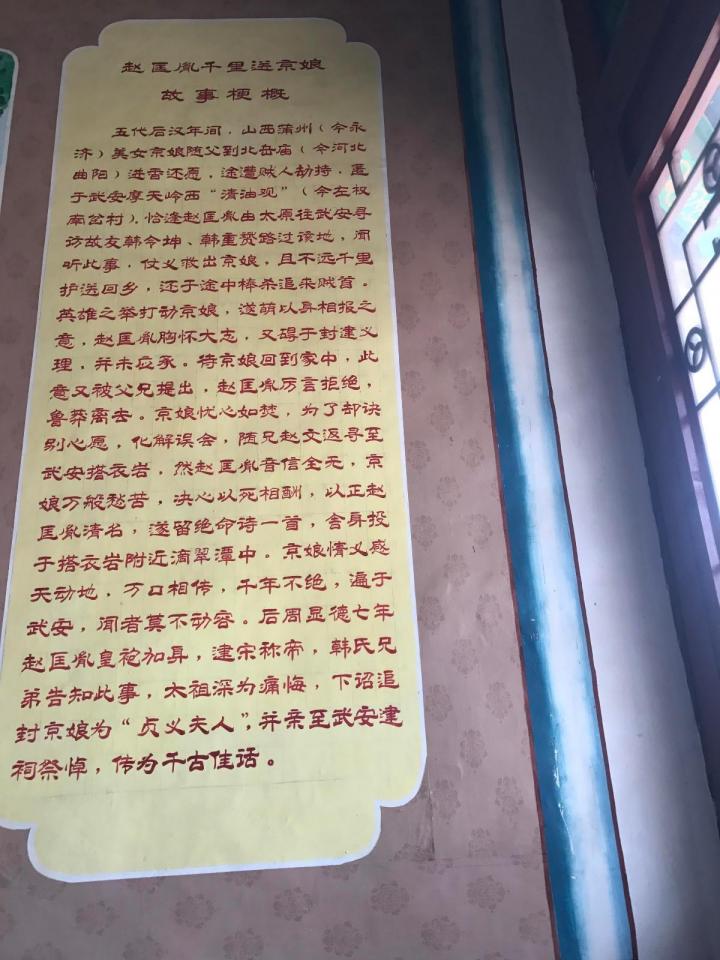 赵匡胤千里送京娘
故事梗概
五代后汉年间，山西蒲州（今永
济）美女京娘随父到北岳庙（今河北
曲阳）进香还愿，途遭贼人劫持，匿
于武安摩天岭西“清油观”（今左权
南岔村）。恰逢赵匡胤由太原往武安寻
访故友韩令坤、韩重赟路过该地，闻
听此事，仗义救出京娘，且不远千里
护送回乡，还于途中棒杀追来贼首。
英雄之举打动京娘，遂萌以身相报之
意，赵匡胤胸怀大志，又碍于封建义
理，并未应承。待京娘回到家中，此
意又被父兄提出，赵匡胤厉言拒绝，
鲁莽离去。京娘忧心如焚，为了却诀
别心愿，化解误会，随兄赵文返寻至
武安搭衣岩，然赵匡胤音信全无，京
娘万般愁苦，决心以死相酬，以正赵
匡胤清名，遂留绝命诗一首，舍身投
于搭衣岩附近滴翠潭中。京娘情义感
天动地，万口相传，千年不绝，遍于
武安，闻者莫不动容。后周显德七年
赵匡胤皇袍加身，建宋称帝，韩氏兄
弟告知此事，太祖深为痛悔，下诏追
封京娘为“贞义夫人”，并亲至武安建
祠祭悼，传为千古佳话。